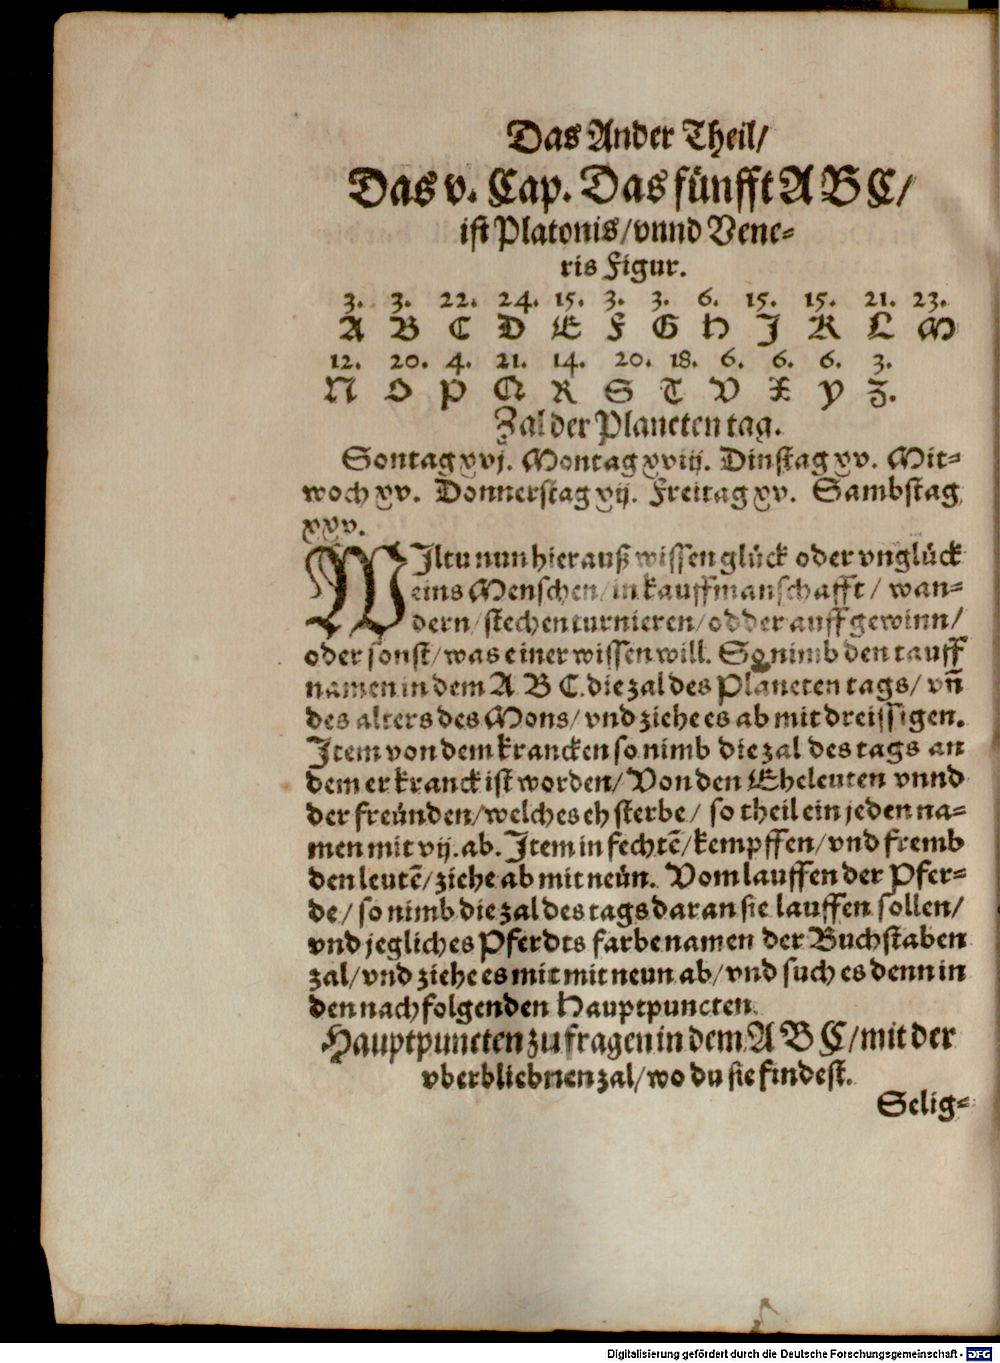 Das Ander Theil/
Das v. Cap. Das fünfft A B C/
ist Platonis/vnnd Vene-
ris Figur.
3. 3. 22. 24. 15. 3. 3. 6. 15. 15. 21. 23.
A B C D E F G H J K L M
12. 20. 4. 21. 14. 20. 18. 6. 6. 6. 3.
N O P Q R S T V X Y Z.
Zal der Planeten tag.
Sontag xvj. Montag xviij. Dinstag xv. Mit-
woch xv. Donnerstag xij. Freitag xv. Sambstag
xxv.
WJltu nun hierauß wissen glück oder vnglück
eins Menschen/in kauffmanschafft/ wan-
dern/stechen turnieren/odder auff gewinn/
oder sonst/was einer wissen will. So nimb den tauff
namen in dem A B C. die zal des Planeten tags/ vñ
des alters des Mons/vnd ziehe es ab mit dreissigen.
Jtem von dem krancken so nimb die zal des tags an
dem er kranck ist worden/ Von den Eheleuten vnnd
der freünden/welches eh sterbe/ so theil ein jeden na-
men mit vij. ab. Jtem in fechtẽ/kempffen/vnd fremb
den leutẽ/ziehe ab mit neün. Vom lauffen der Pfer-
de/so nimb die zal des tags daran sie lauffen sollen/
vnd jegliches Pferdts farbe namen der Buchstaben
zal/vnd ziehe es mit mit neun ab/vnd such es denn in
den nachfolgenden Hauptpuncten.
Hauptpuncten zu fragen in dem A B C/mit der
vberbliebnen zal/wo du sie findest.
Selig-
Digitalisierung gefördert durch die Deutsche Forschungsgemeinschaft - DFG